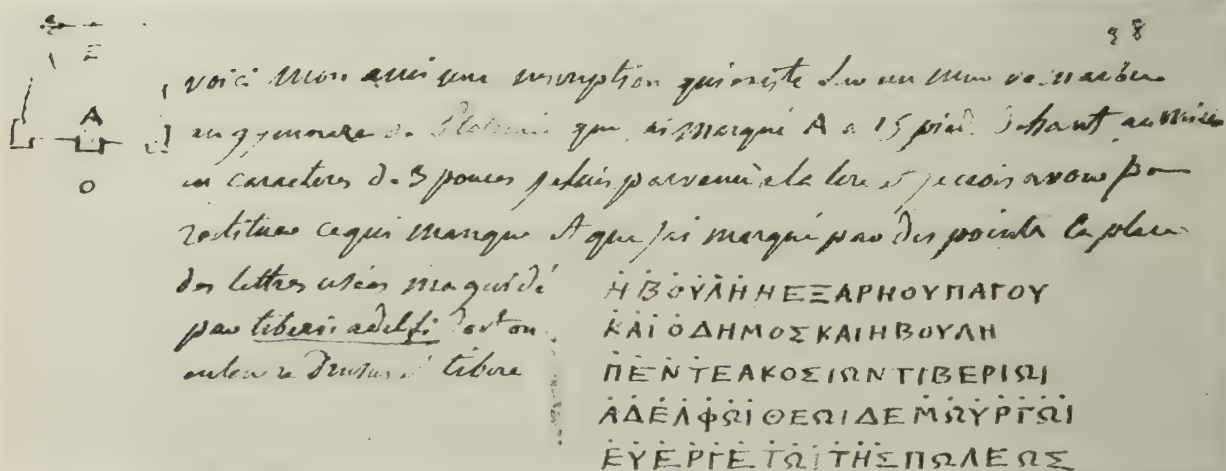 38
Σ
voici mon ami une inscription qui existe sur un mur de marbre
A
au gymnase de que j'ai marqué A a 15 pied d'haut au milieu
O
en caracteres de 3 pouces je suis parvenu a la lire et je crois avoir pu
restituer ce qui manque et que j'ai marqué par des points la place
des lettres usées m'a guidé
par tiberii adelfi
entendre Drusus tibere
ΗΒΟΥΛΗΗΕΞΑΡΗΟΥΠΑΓΟΥ
ΚΑΙΟΔΗΜΟΣΚΑΙΗΒΟΥΛΗ
ΠΕΝΤΕΑΚΟΣΙΩΝΤΙΒΕΡΙΩΙ
ΑΔΕΛΦΩΙΘΕΩΙΔΕΜΩΥΡΓΩΙ
ΕΥΕΡΓΕΤΩΙΤΗΣΠΩΛΕΩΣ